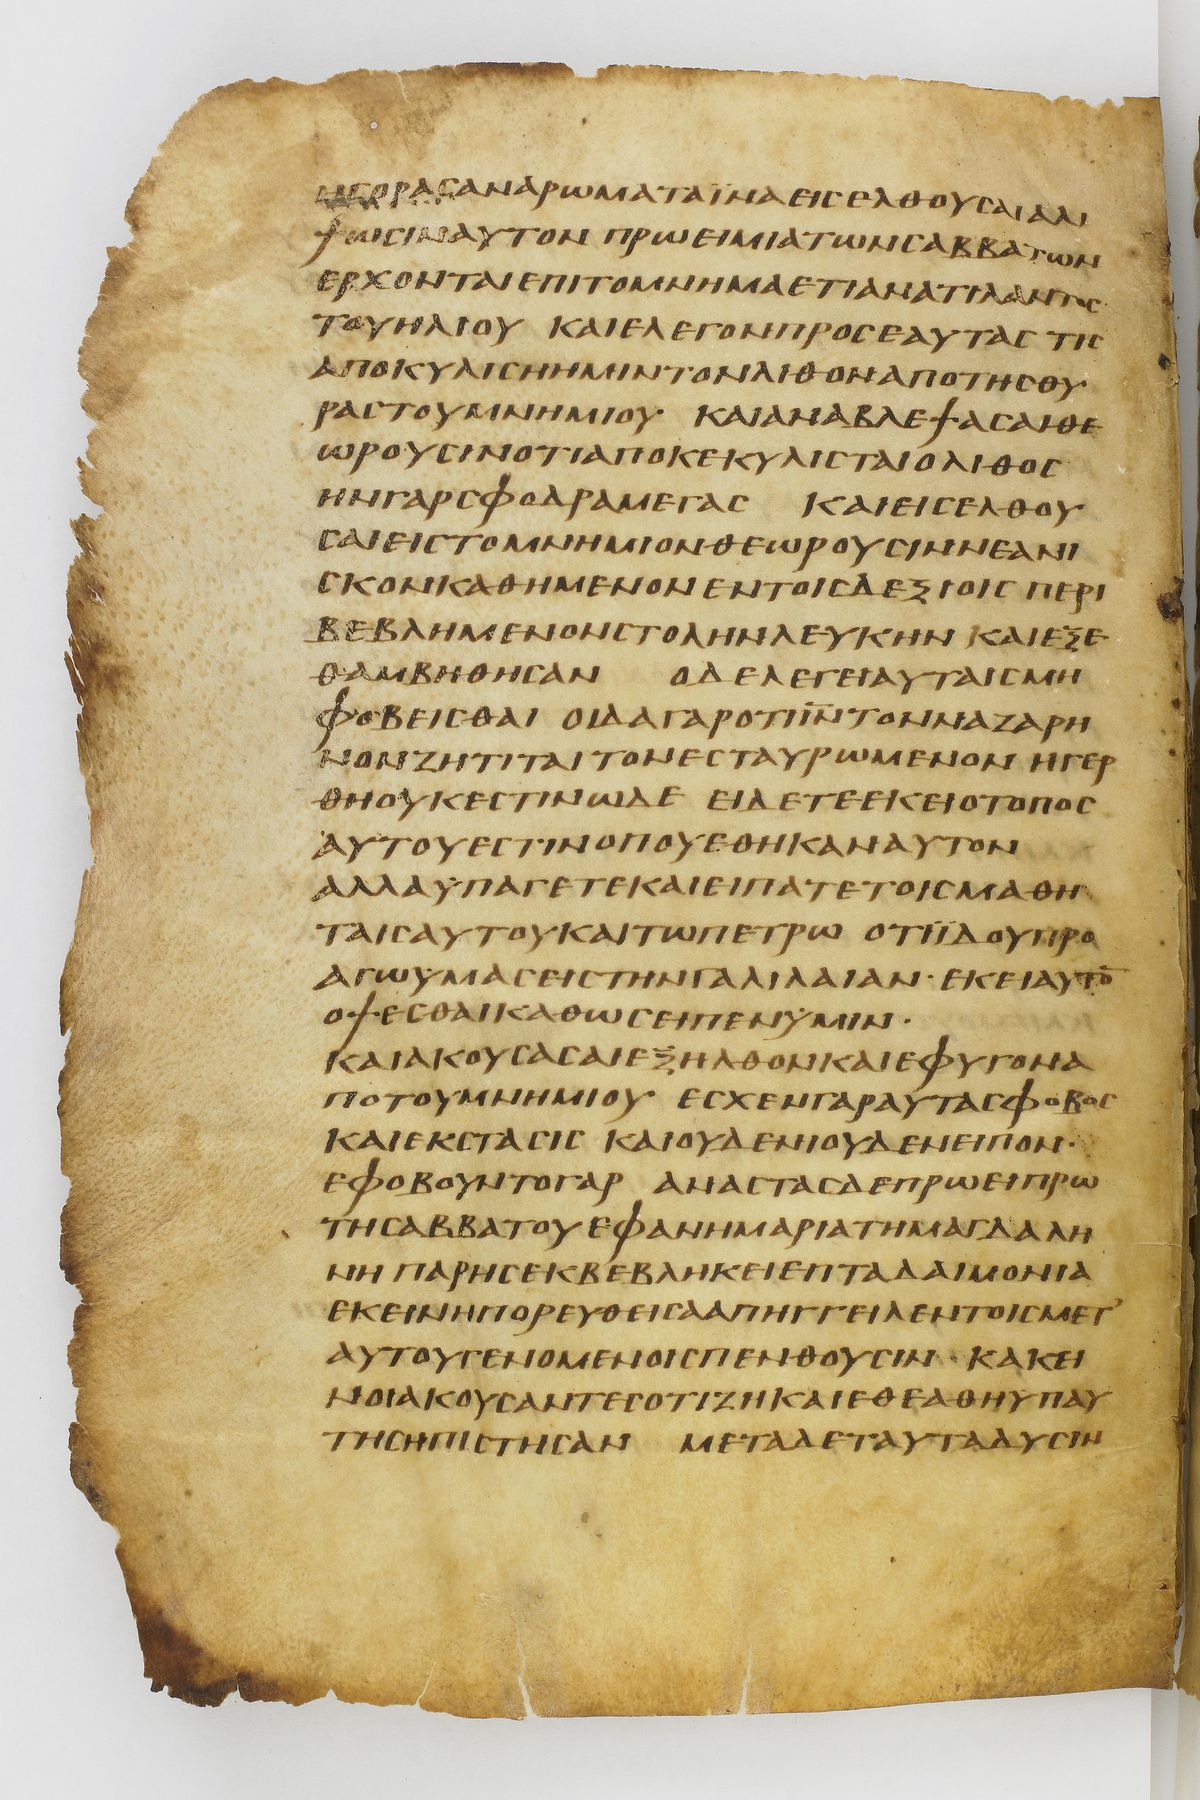 ΗΓΟΡΑСΑΝΑΡΩΜΑΤΑΪΝΑΕΙСΕΛΘΟΥСΑΙΑΛΙ
ΨΩСΙΝΑΥΤΟΝ ΠΡΩΕΙΜΙΑΤΩΝСΑΒΒΑΤΩΝ
ΕΡΧΟΝΤΑΙΕΠΙΤΟΜΝΗΜΑΕΤΙΑΝΑΤΙΛΑΝΤΟС
ΤΟΥΗΛΙΟΥ ΚΑΙΕΛΕΓΟΝΠΡΟСΕΑΥΤΑС ΤΙС
ΑΠΟΚΥΛΙСΗΗΜΙΝΤΟΝΛΙΘΟΝΑΠΟΤΗСΘΥ
ΡΑСΤΟΥΜΝΗΜΙΟΥ ΚΑΙΑΝΑΒΛΕΨΑСΑΙΘΕ
ΩΡΟΥСΙΝΟΤΙΑΠΟΚΕΚΥΛΙСΤΑΙΟΛΙΘΟС
ΗΝΓΑΡСΦΟΔΡΑΜΕΓΑС ΚΑΙΕΙСΕΛΘΟΥ
СΑΙΕΙСΤΟΜΝΗΜΙΟΝΘΕΩΡΟΥСΙΝΝΕΑΝΙ
СΚΟΝΚΑΘΗΜΕΝΟΝΕΝΤΟΙСΔΕΞΙΟΙС ΠΕΡΙ
ΒΕΒΛΗΜΕΝΟΝСΤΟΛΗΝΛΕΥΚΗΝ ΚΑΙΕΞΕ
ΘΑΜΒΗΘΗСΑΝ ΟΔΕΛΕΓΕΙΑΥΤΑΙСΜΗ
ΦΟΒΕΙСΘΑΙ ΟΙΔΑΓΑΡΟΤΙΙ̅Ν̅ΤΟΝΝΑΖΑΡΗ
ΝΟΝΖΗΤΙΤΑΙΤΟΝΕСΤΑΥΡΩΜΕΝΟΝ ΗΓΕΡ
ΘΗΟΥΚΕСΤΙΝΩΔΕ ΕΙΔΕΤΕΕΚΕΙΟΤΟΠΟС
ΑΥΤΟΥΕСΤΙΝΟΠΟΥΕΘΗΚΑΝΑΥΤΟΝ
ΑΛΛΑΥΠΑΓΕΤΕΚΑΙΕΙΠΑΤΕΤΟΙСΜΑΘΗ
ΤΑΙСΑΥΤΟΥΚΑΙΤΩΠΕΤΡΩ ΟΤΙΪΔΟΥΠΡΟ
ΑΓΩΥΜΑСΕΙСΤΗΝΓΑΛΙΛΑΙΑΝ · ΕΚΕΙΑΥΤΟ̅
ΟΨΕСΘΑΙΚΑΘΩСΕΙΠΕΝΥΜΙΝ ·
ΚΑΙΑΚΟΥСΑСΑΙΕΞΗΛΘΟΝΚΑΙΕΦΥΓΟΝΑ
ΠΟΤΟΥΜΝΗΜΙΟΥ ΕСΧΕΝΓΑΡΑΥΤΑСΦΟΒΟС
ΚΑΙΕΚСΤΑСΙС ΚΑΙΟΥΔΕΝΙΟΥΔΕΝΕΙΠΟΝ ·
ΕΦΟΒΟΥΝΤΟΓΑΡ ΑΝΑСΤΑСΔΕΠΡΩΕΙΠΡΩ
ΤΗСΑΒΒΑΤΟΥΕΦΑΝΗΜΑΡΙΑΤΗΜΑΓΔΑΛΗ
ΝΗ ΠΑΡΗСΕΚΒΕΒΛΗΚΕΙΕΠΤΑΔΑΙΜΟΝΙΑ
ΕΚΕΙΝΗΠΟΡΕΥΘΕΙСΑΑΠΗΓΓΕΙΛΕΝΤΟΙСΜΕΤ’
ΑΥΤΟΥΓΕΝΟΜΕΝΟΙСΠΕΝΘΟΥСΙΝ · ΚΑΚΕΙ
ΝΟΙΑΚΟΥСΑΝΤΕСΟΤΙΖΗΚΑΙΕΘΕΑΘΗΥΠΑΥ
ΤΗСΗΠΙСΤΗСΑΝ ΜΕΤΑΔΕΤΑΥΤΑΔΥСΙΝ